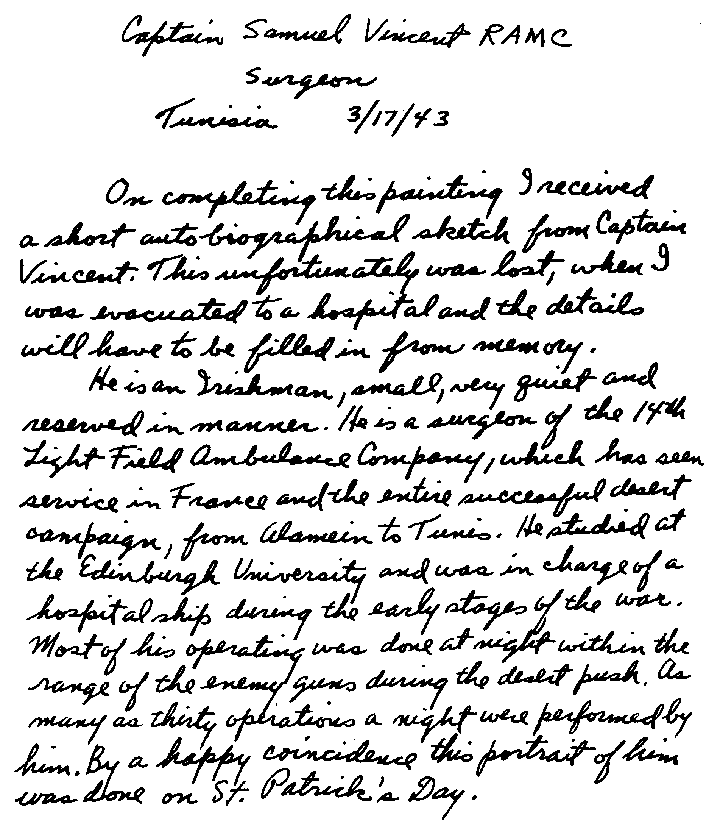 Captain Samuel Vincent RAMC
Surgeon
Tunisia 3/17/43
On completing this painting I received
a short autobiographical sketch from Captain
Vincent. This unfortunately was lost, when I
was evacuated to a hospital and the details
will have to be filled in from memory.
He is an Irishman, small, very quiet and
reserved in manner. He is a surgeon of the 14th
Light Field Ambulance Company, which has seen
service in France and the entire successful desert
campaign, from Alamein to Tunis. He studied at
the Edinburgh University and was in charge of a
hospital ship during the early stages of the war.
Most of his operating was done at night within the
range of the enemy guns during the desert push. As
many as thirty operations a night were performed by
him. By a happy coincidence this portrait of him
was done on St. Patrick's Day.